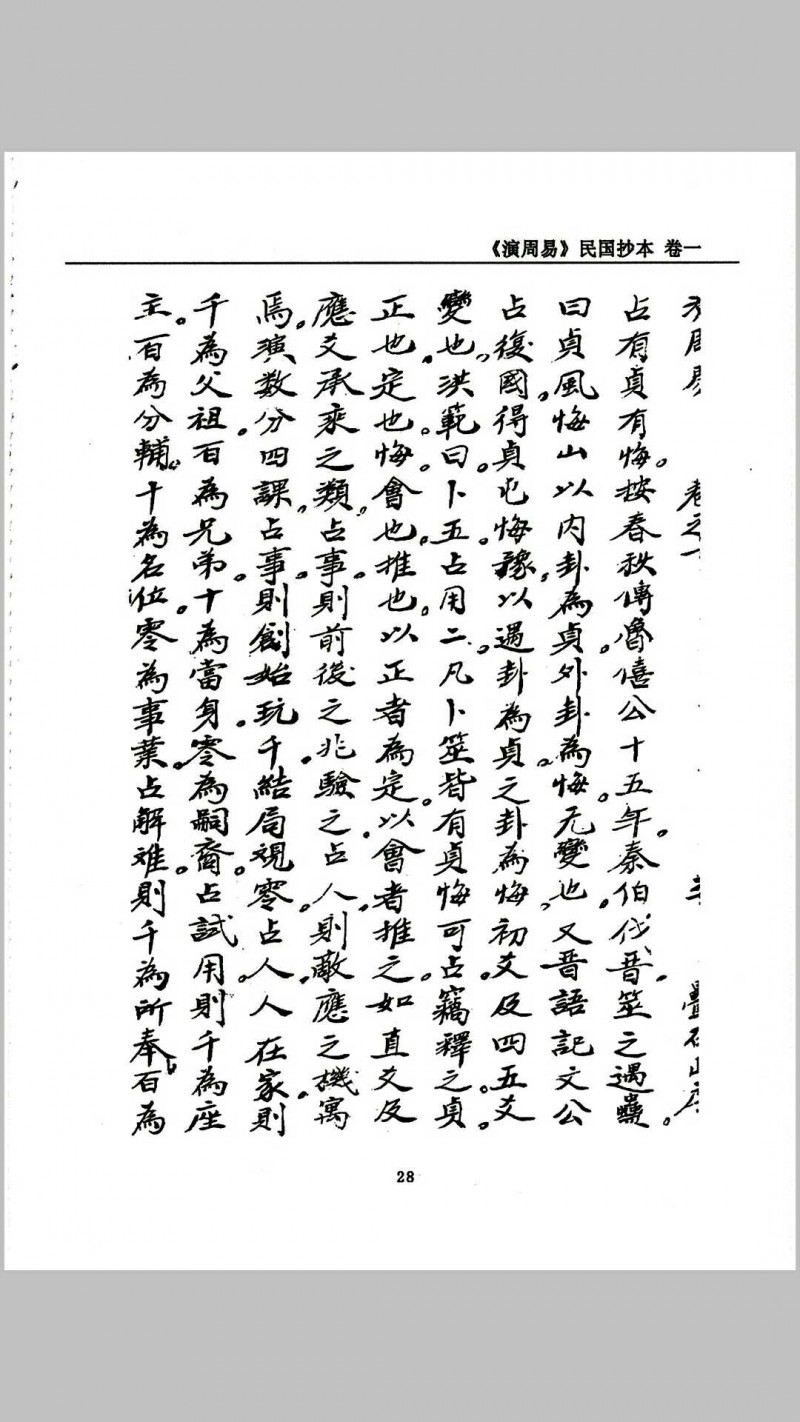 《演周易》民国抄本 卷一
周易 卷之一
占有貞有悔。按春秋傳魯僖公十五年。秦伯伐晋。筮之遇蠱。
曰貞風悔山以内卦為貞外卦為悔。无變也。又晋語記文公
占復國。得貞屯悔豫。以遇卦為貞。之卦為悔。初爻及四五爻
變也。洪範曰。卜五占用二。凡卜筮皆有貞悔可占。竊釋之。貞。
正也。定也。悔。會也。推也。以正者為定。以會者推之。如直爻及
應爻承乘之類。占事。則前後之兆驗之。占人。則敵應之機寓
焉。演数分四課。占事。則創始玩千。結局視零。占人。人在家。則
千為父祖。百為兄弟。十為當身。零為嗣裔。占試用。則千為座
主。百為分輔。十為名位。零為事業。占解难。則千為所奉。百為
28